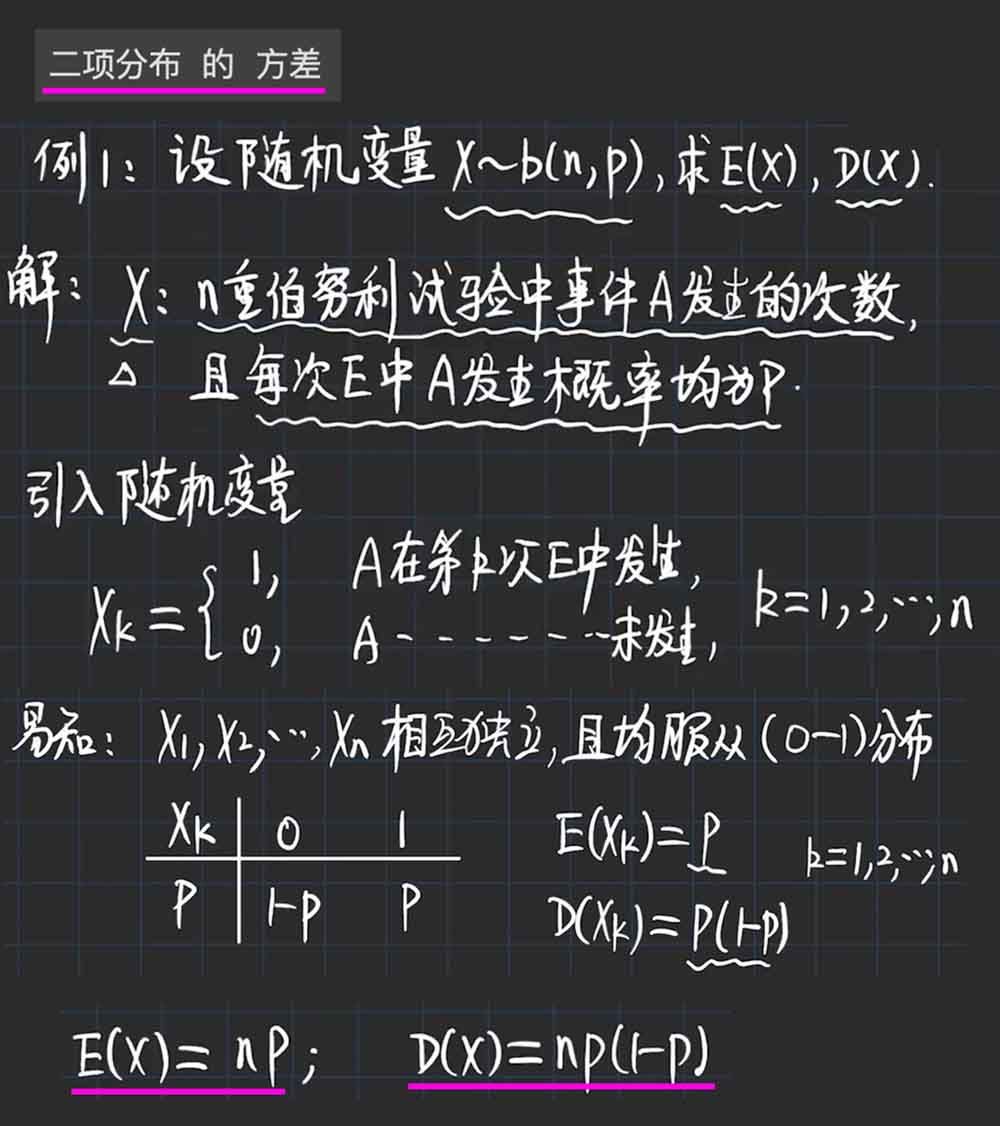 二项分布 的 方差
例1: 设随机变量 X~b(n,p), 求E(X), D(X).
解: X: n重伯努利试验中事件A发生的次数,
且每次E中A发生概率均为P.
引入随机变量
Xk = { 1, A在第k次E中发生,
0, A-------未发生, k=1,2,…,n
易知: X1, X2, …, Xn 相互独立, 且均服从 (0-1)分布
Xk 0 1 E(Xk)=p k=1,2,…,n
P 1-p p D(Xk)=p(1-p)
E(X)= np; D(X)=np(1-p)